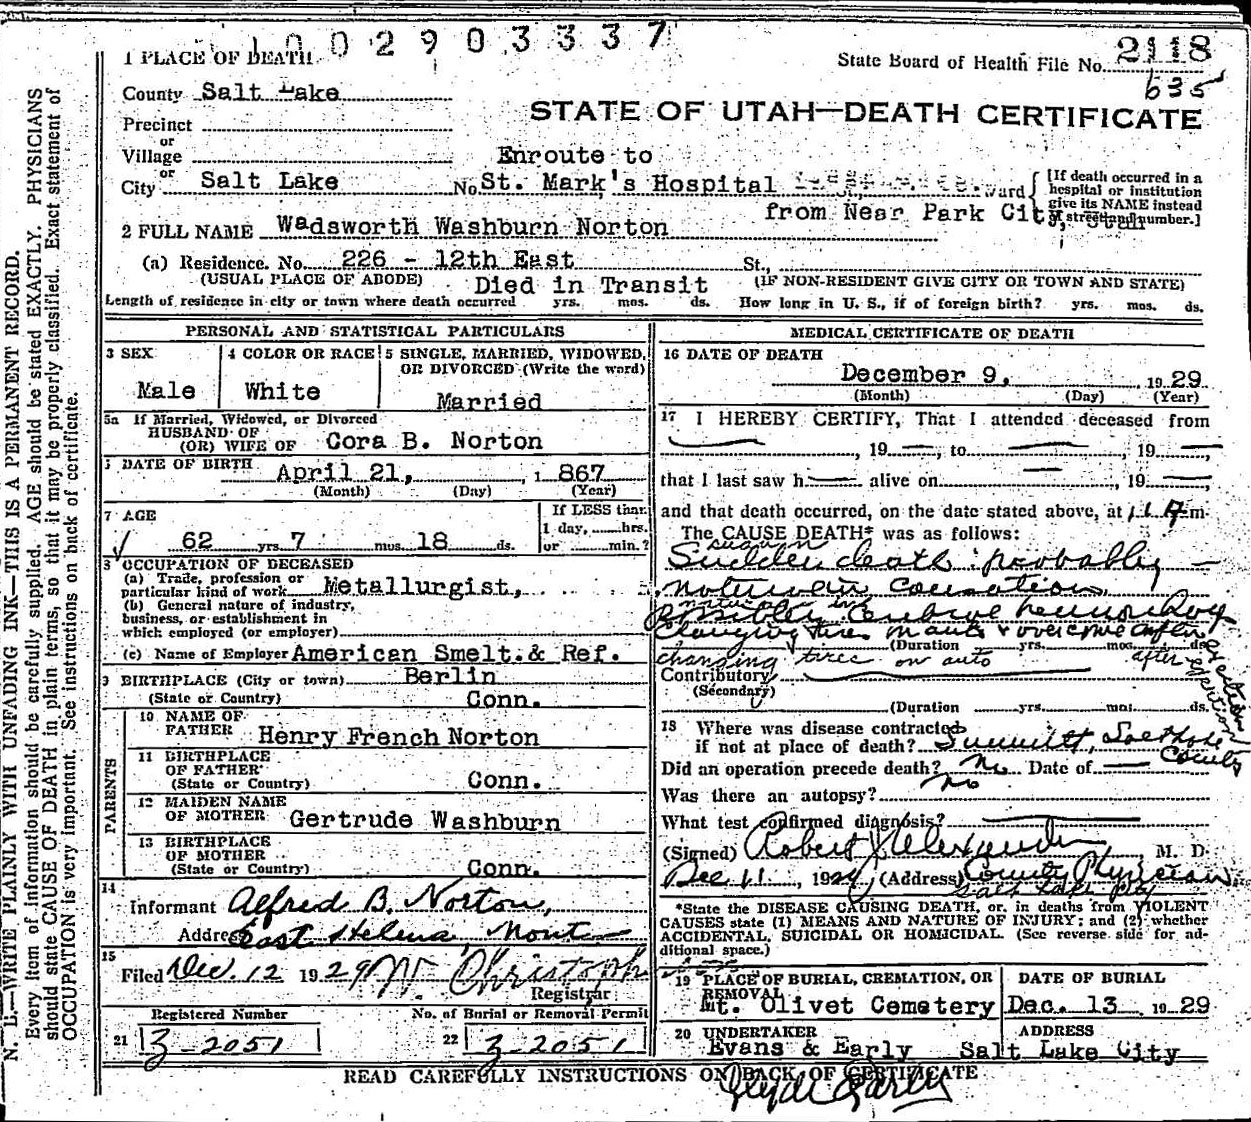 1002903337
1 PLACE OF DEATH
State Board of Health File No. 2118
635
County Salt Lake
STATE OF UTAH—DEATH CERTIFICATE
Precinct
or
Village
Enroute to
or
City Salt Lake No. St. Mark's Hospital Ward
[If death occurred in a hospital or institution give its NAME instead of street and number.]
from Near Park City, Utah
2 FULL NAME Wadsworth Washburn Norton
(a) Residence. No. 226 - 12th East St.,
(USUAL PLACE OF ABODE) Died in Transit (IF NON-RESIDENT GIVE CITY OR TOWN AND STATE)
Length of residence in city or town where death occurred yrs. mos. ds. How long in U. S., if of foreign birth? yrs. mos. ds.
PERSONAL AND STATISTICAL PARTICULARS
3 SEX
Male
4 COLOR OR RACE
White
5 SINGLE, MARRIED, WIDOWED, OR DIVORCED (Write the word)
Married
5a If Married, Widowed, or Divorced
HUSBAND OF
(OR) WIFE OF Cora B. Norton
DATE OF BIRTH April 21, 1867
(Month) (Day) (Year)
7 AGE
62 yrs. 7 mos. 18 ds.
If LESS than
1 day, hrs.
or min.?
8 OCCUPATION OF DECEASED
(a) Trade, profession or
particular kind of work Metallurgist,
(b) General nature of industry,
business, or establishment in
which employed (or employer)
(c) Name of Employer American Smelt. & Ref.
9 BIRTHPLACE (City or town) Berlin
(State or Country) Conn.
PARENTS
10 NAME OF
FATHER Henry French Norton
11 BIRTHPLACE
OF FATHER
(State or Country) Conn.
12 MAIDEN NAME
OF MOTHER Gertrude Washburn
13 BIRTHPLACE
OF MOTHER
(State or Country) Conn.
14
Informant Alfred B. Norton,
Address East Helena, Mont
15
Filed Dec. 12 1929 W. Christoph
Registrar
Registered Number
21 3-2051
No. of Burial or Removal Permit
22 3-2051
MEDICAL CERTIFICATE OF DEATH
16 DATE OF DEATH
December 9, 1929
(Month) (Day) (Year)
17 I HEREBY CERTIFY, That I attended deceased from
, 19 , to , 19 ,
that I last saw h alive on , 19 ,
and that death occurred, on the date stated above, at m.
The CAUSE DEATH* was as follows:
Sudden death probably
natural in
Possibly
changing tires on auto
after exertion
(Duration yrs. mos. ds.
Contributory
(Secondary)
(Duration yrs. mos. ds.
18 Where was disease contracted
if not at place of death? Summitt, County
Did an operation precede death? No Date of
Was there an autopsy? No
What test confirmed diagnosis?
(Signed) Robert J Alexander, M. D.
Dec 11, 1929 (Address) County Physician
Salt Lake City
*State the DISEASE CAUSING DEATH, or, in deaths from VIOLENT
CAUSES state (1) MEANS AND NATURE OF INJURY; and (2) whether
ACCIDENTAL, SUICIDAL OR HOMICIDAL. (See reverse side for additional space.)
19 PLACE OF BURIAL, CREMATION, OR REMOVAL
Mt. Olivet Cemetery
DATE OF BURIAL
Dec. 13 1929
20 UNDERTAKER
Evans & Early
ADDRESS
Salt Lake City
READ CAREFULLY INSTRUCTIONS ON BACK OF CERTIFICATE
Clyde Early
N. B.—WRITE PLAINLY WITH UNFADING INK—THIS IS A PERMANENT RECORD.
Every item of information should be carefully supplied. AGE should be stated EXACTLY. PHYSICIANS
should state CAUSE OF DEATH in plain terms, so that it may be properly classified. Exact statement of
OCCUPATION is very important. See instructions on back of certificate.